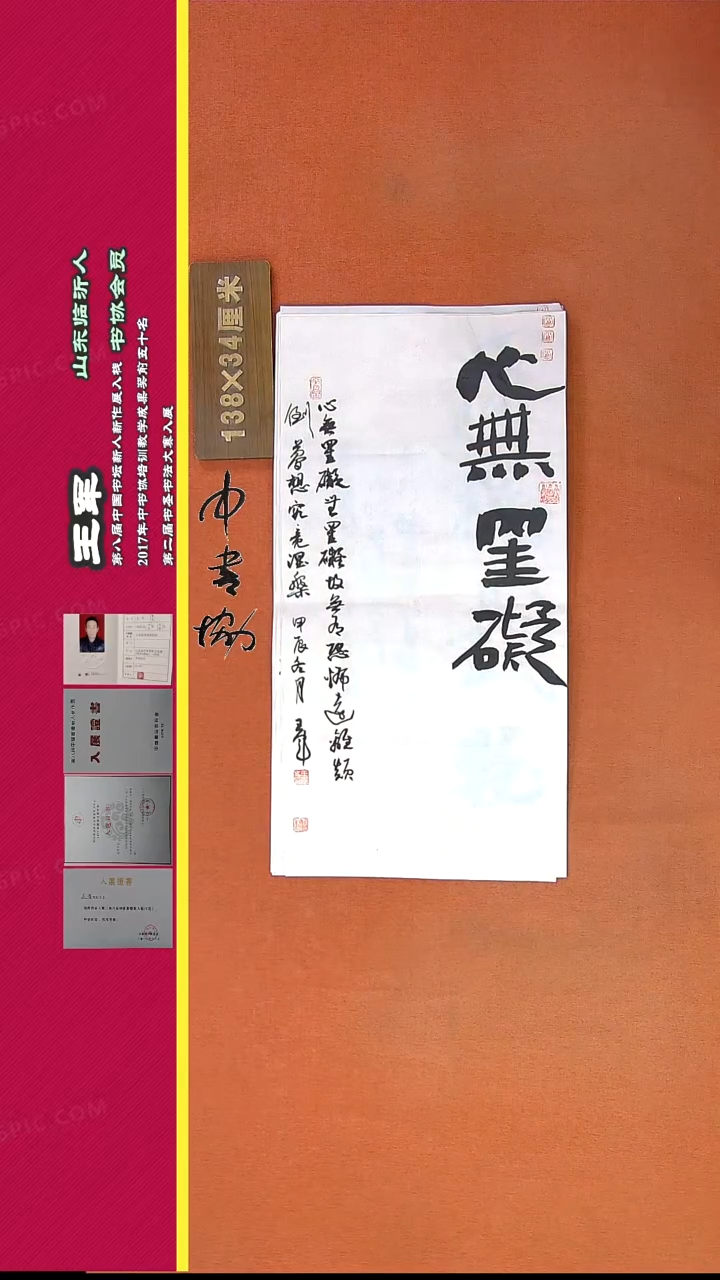 王军
山东临沂人
书协会员
第八届中国书坛新人新作展入展
2017年中书协培训教学成果奖前五十名
第二届书圣书法大赛入展
138X34厘米
中书协
心無罣礙
心無罣礙無罣礙故無有恐怖遠離顛
倒夢想究竟涅槃 甲辰冬月 王軍
入展證書
入展證書